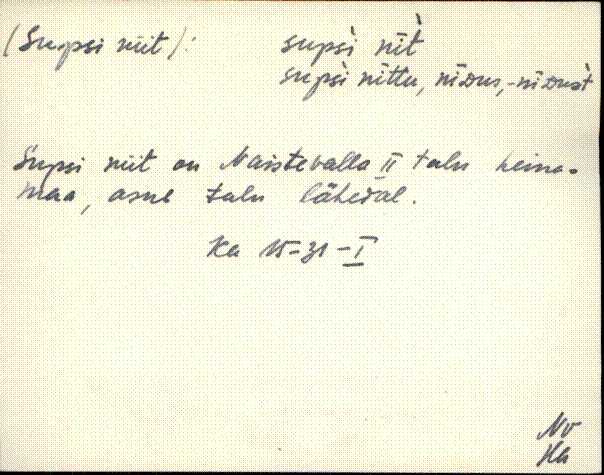 (Supsi niit): supsì nìt
supsì nittu, nìdus, -nìdust
Supsi niit on Naistevalla II talu heina-
maa, asub talu lähedal.
Ka 15-31-I
Nv
Ha